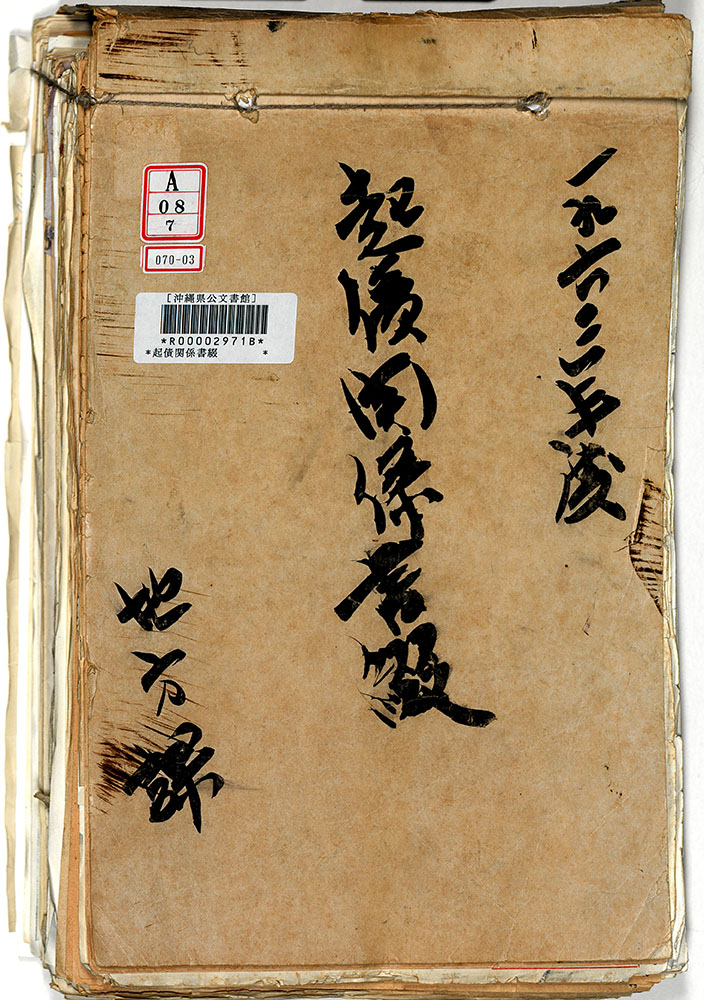 一九六二年度
起債関係書綴
地方課
A
08
7
070-03
[沖縄県公文書館]
*R00002971B*
*起債関係書綴 *